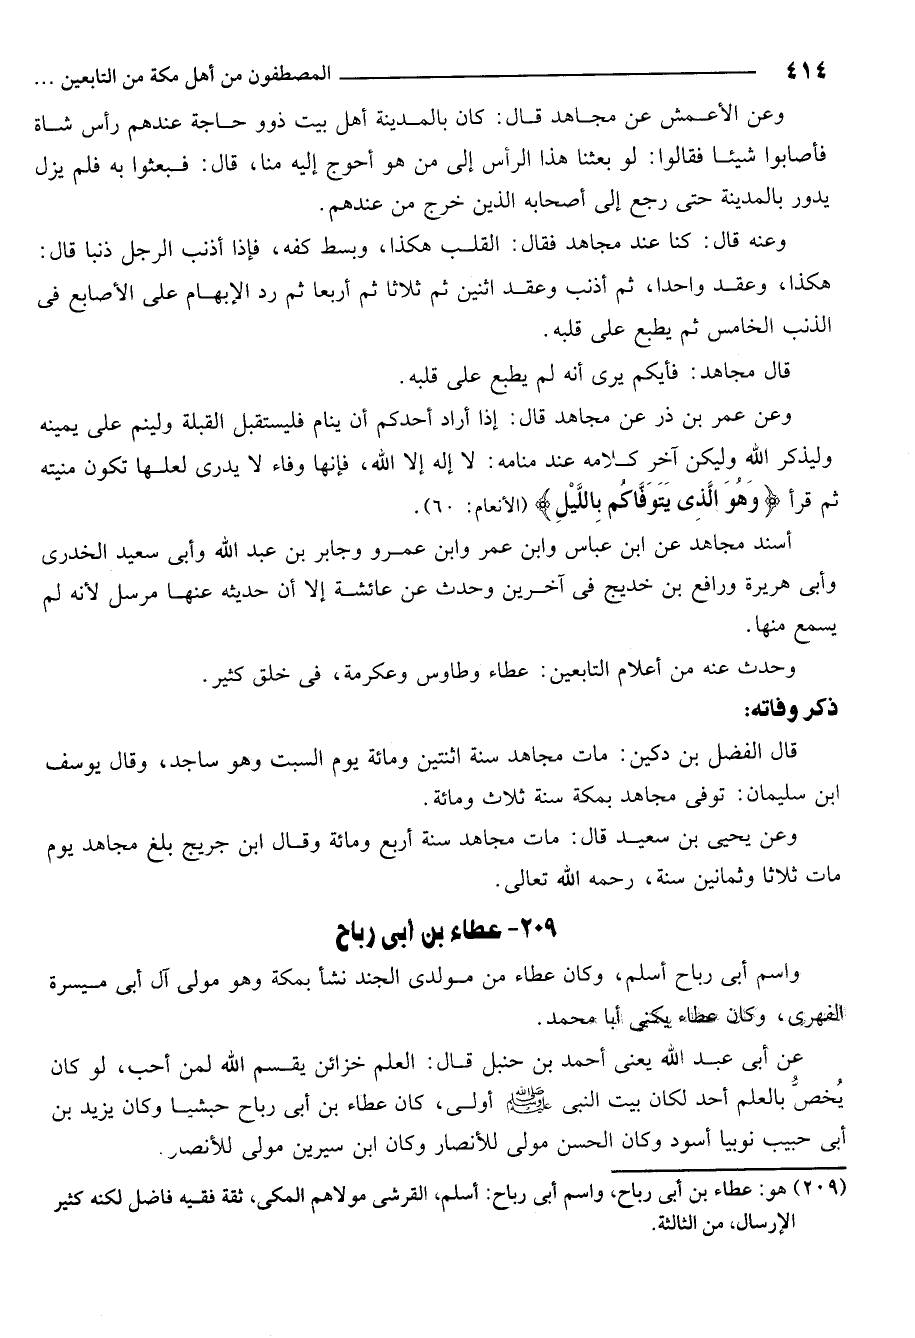 ٤١٤ المصطفون من أهل مكة من التابعين ...
وعن الأعمش عن مجاهد قال: كان بالمدينة أهل بيت ذوو حاجة عندهم رأس شاة
فأصابوا شيئا فقالوا: لو بعثنا هذا الرأس إلى من هو أحوج إليه منا، قال: فبعثوا به فلم يزل
يدور بالمدينة حتى رجع إلى أصحابه الذين خرج من عندهم.
وعنه قال: كنا عند مجاهد فقال: القلب هكذا، وبسط كفه، فإذا أذنب الرجل ذنبا قال:
هكذا، وعقد واحدا، ثم أذنب وعقد اثنين ثم ثلاثا ثم أربعا ثم رد الإبهام على الأصابع فى
الذنب الخامس ثم يطبع على قلبه.
قال مجاهد: فأيكم يرى أنه لم يطبع على قلبه.
وعن عمر بن ذر عن مجاهد قال: إذا أراد أحدكم أن ينام فليستقبل القبلة ولينم على يمينه
وليذكر الله وليكن آخر كلامه عند منامه: لا إله إلا الله، فإنها وفاء لا يدرى لعلها تكون منيته
ثم قرأ ﴿وَهُوَ الَّذِى يَتَوَفَّاكُم بِاللَّيْلِ﴾ (الأنعام: ٦٠).
أسند مجاهد عن ابن عباس وابن عمر وابن عمرو وجابر بن عبد الله وأبى سعيد الخدرى
وأبى هريرة ورافع بن خديج فى آخرين وحدث عن عائشة إلا أن حديثه عنها مرسل لأنه لم
يسمع منها.
وحدث عنه من أعلام التابعين: عطاء وطاوس وعكرمة، فى خلق كثير.
ذكر وفاته:
قال الفضل بن دكين: مات مجاهد سنة اثنتين ومائة يوم السبت وهو ساجد، وقال يوسف
ابن سليمان: توفى مجاهد بمكة سنة ثلاث ومائة.
وعن يحيى بن سعيد قال: مات مجاهد سنة أربع ومائة وقال ابن جريج بلغ مجاهد يوم
مات ثلاثا وثمانين سنة، رحمه الله تعالى.
٢٠٩- عطاء بن أبى رباح
واسم أبى رباح أسلم، وكان عطاء من مولدى الجند نشأ بمكة وهو مولى آل أبى ميسرة
الفهرى، وكان عطاء يكنى أبا محمد.
عن أبى عبد الله يعنى أحمد بن حنبل قال: العلم خزائن يقسم الله لمن أحب، لو كان
يُخصُّ بالعلم أحد لكان بيت النبى ﷺ أولى، كان عطاء بن أبى رباح حبشيا وكان يزيد بن
أبى حبيب نوبيا أسود وكان الحسن مولى للأنصار وكان ابن سيرين مولى للأنصار.
(٢٠٩) هو: عطاء بن أبى رباح، واسم أبى رباح: أسلم، القرشى مولاهم المكى، ثقة فقيه فاضل لكنه كثير
الإرسال، من الثالثة.